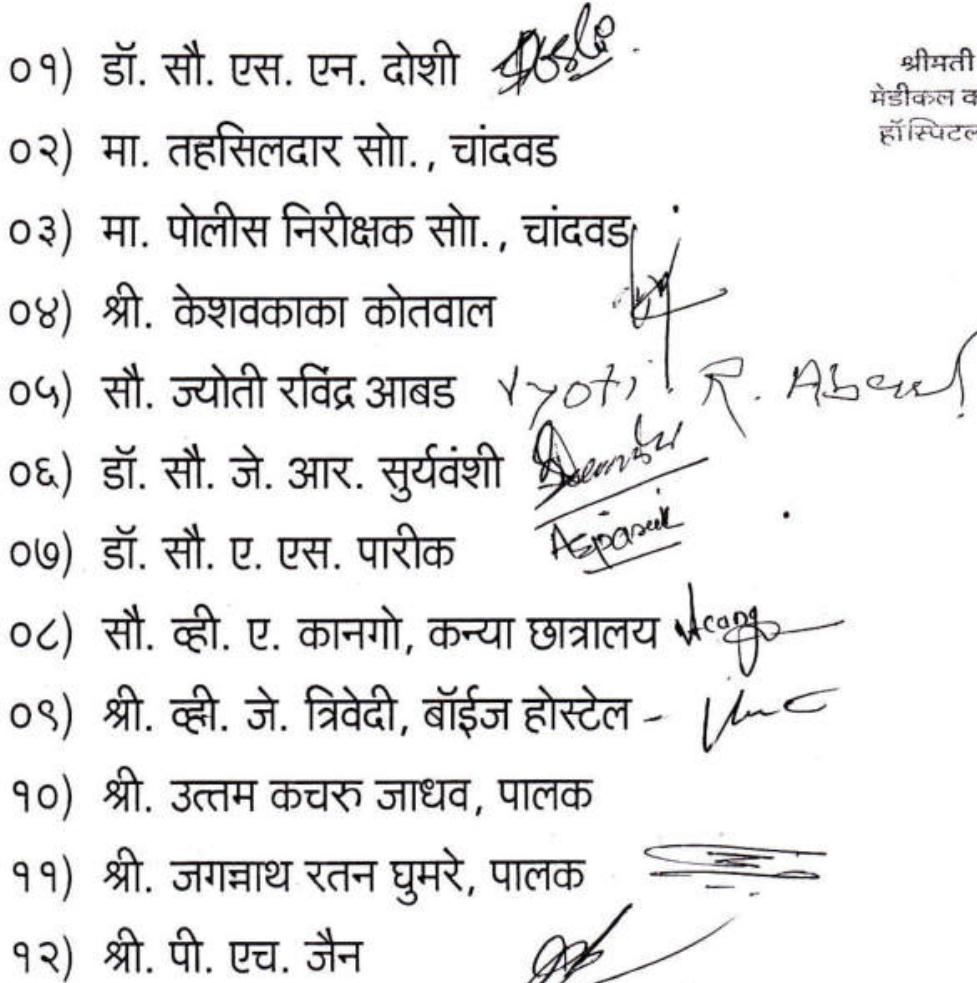 ०१) डॉ. सौ. एस. एन. दोशी
श्रीमती
मेडीकल
हॉस्पिटल
०२) मा. तहसिलदार सो., चांदवड
०३) मा. पोलीस निरीक्षक सो., चांदवड
०४) श्री. केशवकाका कोतवाल
०५) सौ. ज्योती रविंद्र आबड Jyoti R. Abad
०६) डॉ. सौ. जे. आर. सुर्यवंशी
०७) डॉ. सौ. ए. एस. पारीक ASpareek
०८) सौ. व्ही. ए. कानगो, कन्या छात्रालय
०९) श्री. व्ही. जे. त्रिवेदी, बॉईज होस्टेल -
१०) श्री. उत्तम कचरु जाधव, पालक
११) श्री. जगन्नाथ रतन घुमरे, पालक
१२) श्री. पी. एच. जैन